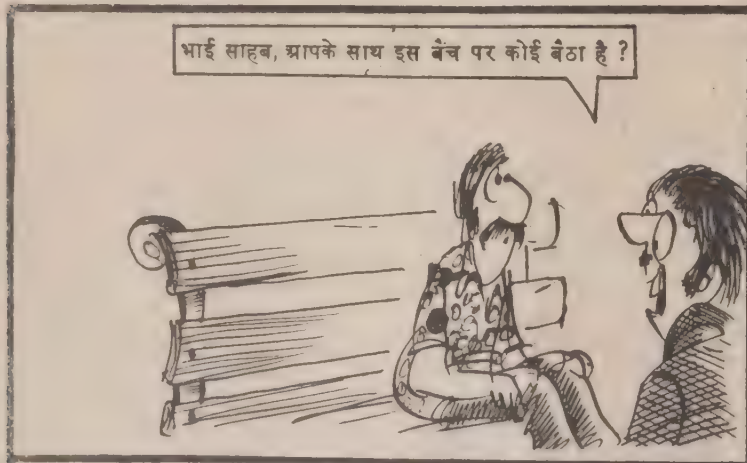 भाई साहब, आपके साथ इस बैंच पर कोई बैठा है ?